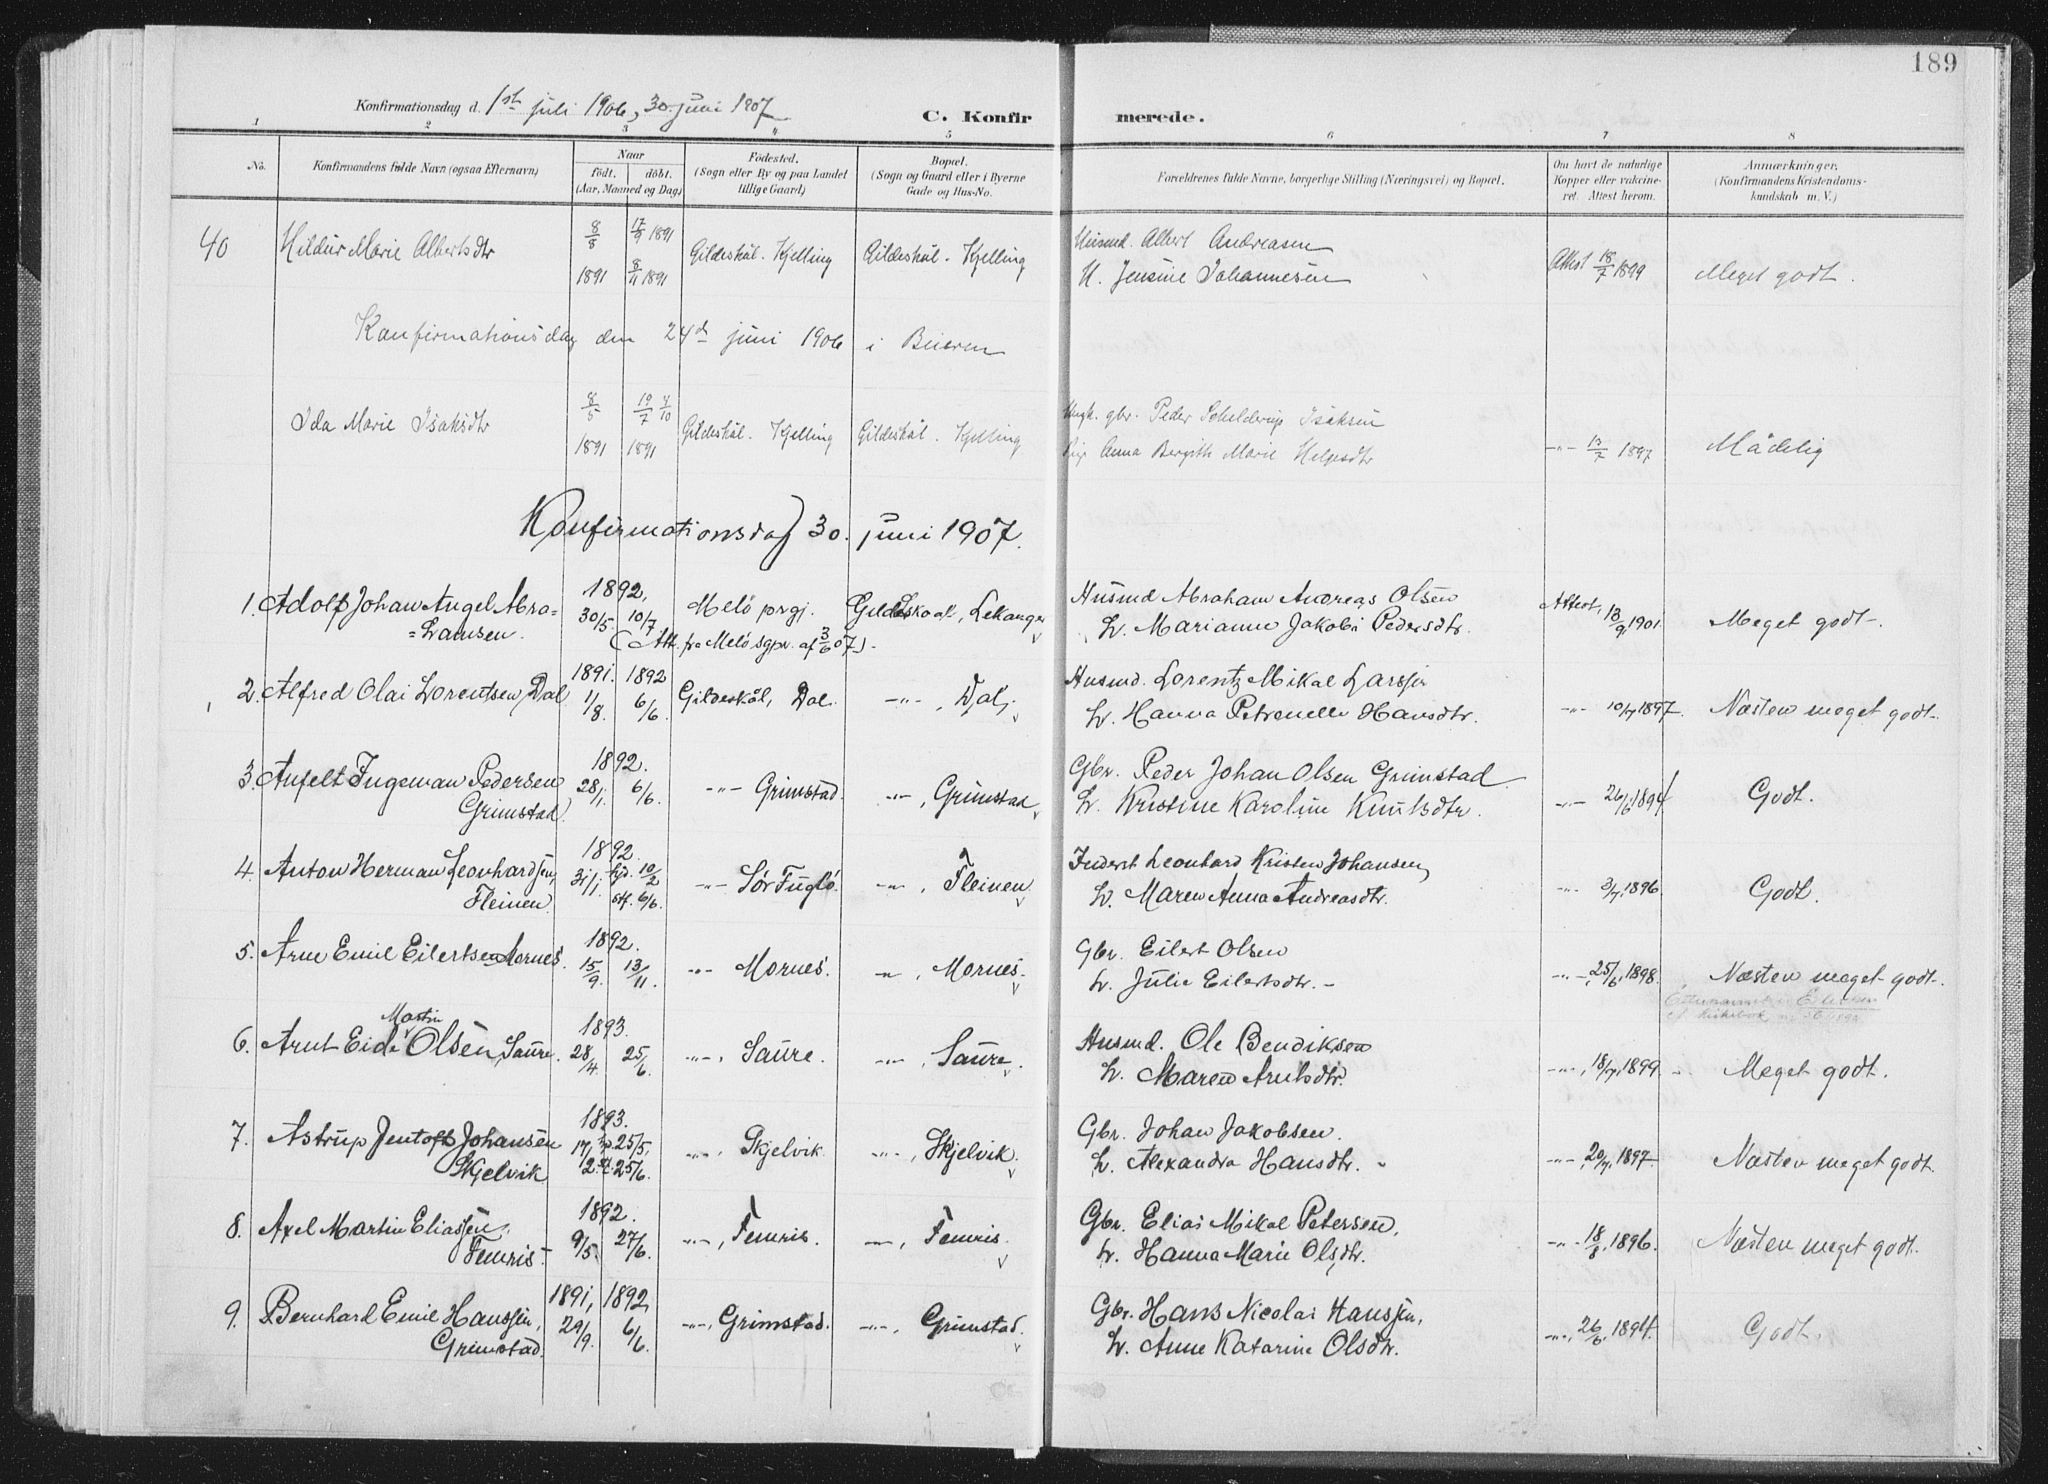 189
Konfirmationsdag d. 1st juli 1906, 30. juni 1907
C. Konfirmerede.
1 2 3 4 5 6 7 8
No.
Konfirmandens fulde Navn (ogsaa Efternavn)
Naar
født. døbt.
(Aar, Maaned og Dag)
Fødested.
(Sogn eller By og paa Landet
tillige Gaard)
Bopæl.
(Sogn og Gaard eller i Byerne
Gade og Hus-No.
Forældrenes fulde Navne, borgerlige Stilling (Næringsvei) og Bopæl.
Om havt de naturlige
Kopper eller vakcine-
ret. Attest herom.
Anmærkninger.
(Konfirmandens Kristendoms-
kundskab m. V.)
40 Hildur Marie Albertsdtr 8/8 1891 17/9 1891 8/11 1891 Gildeskål. Kjelling Gildeskål. Kjelling
Husmd. Albert Andreasen
H. Jensine Johannesen Attest 18/7 1899 Meget godt.
Konfirmationsdag den 24d juni 1906 i Beieren
Ida Marie Isaksdtr 8/5 1891 19/7 4/10 1891 Gildeskål. Kjelling Gildeskål. Kjelling
Ungk. gbr. Peder Schelderup Isaksen
Pige Anna Bergith Marie Helgesdtr -"- 13/7 1897 Mådelig
Konfirmationsdag 30. juni 1907.
1. Adolf Johan Angel Abra= 1892, 30/5. 10/7 Melö prgj. Gildeskaal, Lekanger
=hamsen. (Att. fra Melö sgpr. af 3/6 07).
Husmd Abraham Andreas Olsen
H. Marianne Jakobi Pedersdtr. Attest, 13/9 1901. Meget godt.
2. Alfred Olai Lorentsen, Dal 1891. 1/8. 1892 6/6. Gildeskål, Dal. -"-, Dal.
Husmd. Lorentz Mikal Larssen
H. Hanna Petronelle Hansdtr. -"- 10/7 1897. Næsten meget godt.
3. Anfelt Ingeman Pedersen 1892. 28/1. 6/6. -"- Grimstad. -"-, Grimstad
Grimstad.
Gbr. Peder Johan Olsen Grimstad
H. Kristine Karoline Knutsdtr. -"- 26/6 1894 Godt.
4. Anton Herman Leonhardsen, 1892. 31/1. hjd. 10/2 st. 6/6. -"- Sör Fuglö. -"-, Fleinen
Fleinen.
Inderst Leonhard Kristen Johansen
H. Maren Anna Andreasdtr. -"- 3/7, 1896. Godt.
5. Arne Emil Eilertsen Mornes. 1892. 15/9. 13/11. -"- Mornes. -"-, Mornes.
Gbr. Eilert Olsen
H. Julie Eilertsdtr. -"-, 25/6, 1898. Næsten meget godt.
Martin
6. Arnt Eide Olsen, Saure. 1893. 28/4. 25/6. -"-, Saure. -"-, Saure.
Husmd. Ole Bendiksen
H. Maren Arntsdtr. -"-, 18/7, 1899. Meget godt.
7. Astrup Jentoft Johansen 1893. 17/2 hjd. 25/5, st. 25/6. -"-, Skjelvik. -"-, Skjelvik.
Skjelvik
Gbr. Johan Jakobsen.
H. Alexandra Hansdtr. -"-, 20/7, 1897. Næsten meget godt.
8. Axel Martin Eliassen, 1892. 9/5. 27/6. -"-, Femris. -"-, Femris.
Femris.
Gbr. Elias Mikal Petersen,
H. Hanna Marie Olsdtr. -"- 18/8, 1896. Næsten meget godt.
9. Bernhard Emil Hanssen, 1891, 29/9. 1892, 6/6. -"-, Grimstad. -"-, Grimstad.
Grimstad.
Gbr. Hans Nicolai Hanssen,
H. Anne Katarine Olsdtr. -"-, 26/6, 1894. Godt.